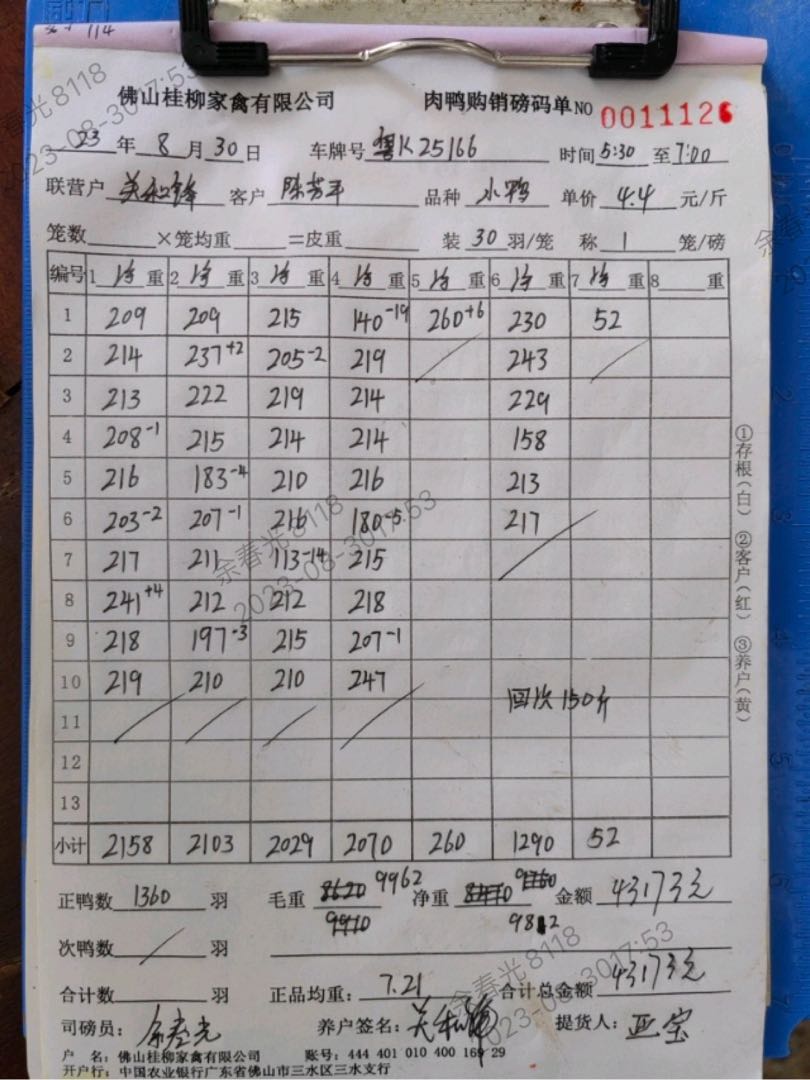 114
佛山桂柳家禽有限公司 肉鸭购销磅码单 NO 0011126
23 年 8 月 30 日 车牌号 粤K25166 时间 5:30 至 7:00
联营户 关和锋 客户 陈芳平 品种 小鸭 单价 4.4 元/斤
笼数 ×笼均重 =皮重 装 30 羽/笼 称 1 笼/磅
编号 1 重 2 重 3 重 4 重 5 重 6 重 7 重 8 重
1 209 209 215 140-19 260+6 230 52
2 214 237+2 205-2 219 243
3 213 222 219 214 229
4 208-1 215 214 214 158
5 216 183-4 210 216 213
6 203-2 207-1 216 180-5 217
7 217 211 113-14 215
8 241+4 212 212 218
9 218 197-3 215 207-1
10 219 210 210 247
回次150斤
11
12
13
小计 2158 2103 2029 2070 260 1290 52
正鸭数 1360 羽 毛重 8620 9910 9962 净重 9760 9812 金额 43173元
次鸭数 / 羽
合计数 羽 正品均重: 7.21 合计总金额 43173元
司磅员: 余春光 养户签名: 关和锋 提货人: 亚宝
户 名: 佛山桂柳家禽有限公司 账号: 444 401 010 400 169 29
开户行: 中国农业银行广东省佛山市三水区三水支行
①存根(白) ②客户(红) ③养户(黄)
余春光 8118
2023-08-30 17:53